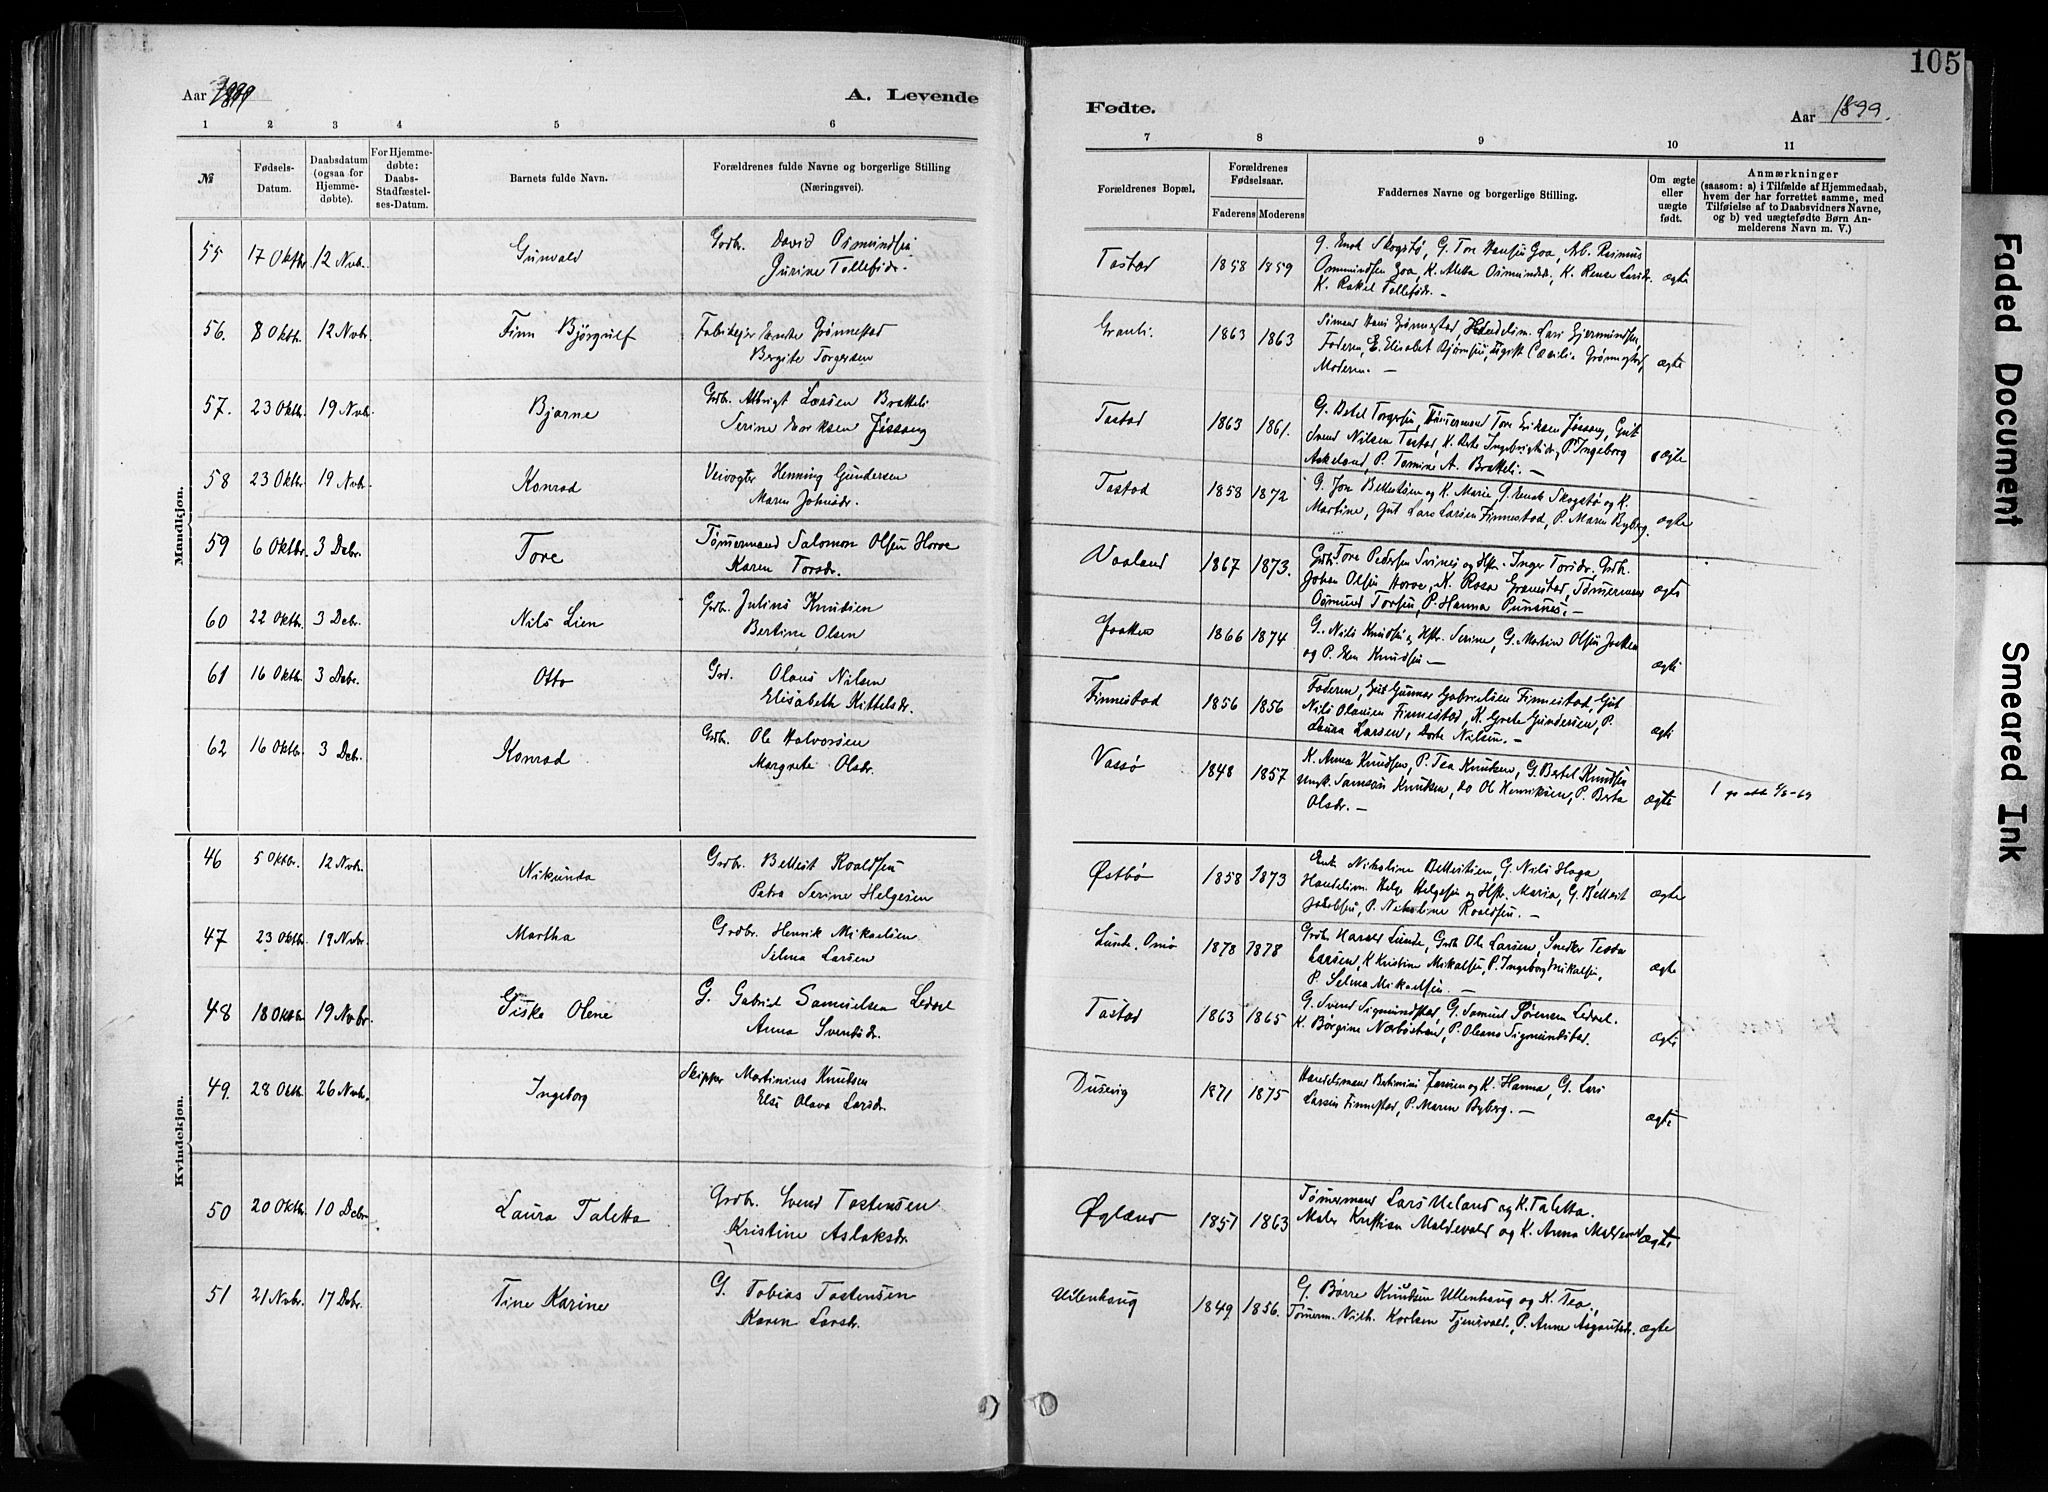 105
Aar 1899
A. Levende
Fødte.
Aar 1899.
1 2 3 4 5 6
7 8 9 10 11
№
Fødsels-Datum.
Daabsdatum (ogsaa for Hjemmedøbte).
For Hjemmedøbte: Daabs-Stadfæstelses-Datum.
Barnets fulde Navn.
Forældrenes fulde Navne og borgerlige Stilling (Næringsvei).
Forældrenes Bopæl.
Forældrenes Fødselsaar.
Faderens Moderens
Faddernes Navne og borgerlige Stilling.
Om ægte eller uægte født.
Anmærkninger
(saasom: a) i Tilfælde af Hjemmedaab, hvem der har forrettet samme, med Tilføielse af to Daabsvidners Navne, og b) ved uægtefødte Børn Anmelderens Navn m. V.)
Mandkjøn.
55 17 Oktbr 12 Nvbr. Gunvald Grdbr. David Osmundsen
Gurine Tollefsdr.
Tastad 1858 1859 G. Enok Skogstø, G. Tore Hansen Goa, Arb. Rasmus
Osmundsen Goa, K. Aletta Osmundsdr, K. Larsdr.
K. Rakel Tollefsdr. —
ægte
56. 8 Oktbr. 12 Nvbr. Finn Bjørgulf Fabrikejer Grønnestad
Bergite Torgersen
Granli. 1863 1863 Hans Grønnestad, Handelsm. Lars Gjermundsen,
Faderen, E. Elisabet Bjørnsen, Cæcilia Grønnestad,
Moderen. —
ægte
57. 23 Oktbr. 19 Nvbr. Bjarne Grdbr. Albrigt Larsen Bratteli
Serine Eriksen Jøssang
Tastad 1863 1861. G. Betel Torgersen, Tømmermand Tore Eriksen Jøssang, Gut
Svend Nilsen Tastad, K. Berte Ingebrigtsdr, P. Ingeborg
Askeland, P. Tomine A. Bratteli. —
ægte
58 23 Oktbr. 19 Nvbr. Konrad Veivogter Henning Gundersen
Maren Johnsdr.
Tastad 1858 1872 G. Jon Bertelsen og K. Marie, G. Enok Skogstø og K.
Martine, Gut Lars Larsen Finnestad, P. Maren Byberg.
ægte
59 6 Oktbr. 3 Dcbr. Tore Tømmermand Salomon Olsen Horve
Karen Torsdr.
Vaaland 1867 1873. Grdbr. Tore Pedersen og Hstr. Inger Torsdr. Grdb.
Johan Olsen Horve, K. Rosa Granestad, Tømmerman
Osmund Torsen, P. Hanna —
ægte
60 22 Oktbr. 3 Dcbr. Nils Lien Grdbr. Julius Knudsen
Bertine Olsen
Jaatten 1866 1874 G. Nils Knudsen og Hstr. Serine, G. Martin Olsen Jaatten
og P. Knudsen —
ægte
61 16 Oktbr. 3 Dcbr. Otto Grd. Olaus Nilsen
Elisabeth Kittelsdr.
Finnestad 1856 1856 Faderen, Gut Gunnar Gabrielsen Finnestad, Gut
Nils Olausen Finnestad, K. Grete Gundersen, P.
Laura Larsen, Dorte Nilsen. —
ægte
62 16 Oktbr. 3 Dcbr. Konrad Grdbr. Ole Halvorsen
Margrete Olsdr.
Vassø 1848 1857 K. Anna Knudsen, P. Tea Knudsen, G. Bertel Knudsen
Ungk. Samson Knudsen, do Ole Henriksen, P. Berta
Olsdr. —
ægte
Kvindekjøn.
46 5 Oktbr. 12 Nvbr. Nikunda Grdbr. Bertest Roaldsen
Petra Serine Helgesen
Østbø 1858 1873 Enke Nikoline G. Nils Haga,
Handelsm. Helge Helgesen og Hstr. Maria, G.
Jakobsen, P. Nikoline Roaldsen. —
ægte
47 23 Oktbr. 19 Nvbr. Martha Grdbr. Henrik Mikaelsen
Selma Larsen
Lunde, Omø 1878 1878 Grdb. Harald Lunde, Grdb Ole Larsen, Snedker
Larsen, K Kristine Mikalsen, P. Ingeborg Mikalsen,
P. Selma Mikaelsen. —
ægte
48 18 Oktbr 19 Nvbr. Giske Olene G. Gabriel Samuelsen Ledaal
Anna Svendsdr.
Tastad 1863 1865 G. Svend Sigmundstad, G. Samuel Sørensen Ledaal.
K. Børgine P. Oleana Sigmundstad.
ægte
49. 28 Oktbr. 26 Nvbr. Ingeborg Skipper Martinius Knudsen
Else Olava Larsdr.
Dusevig 1871 1875 Handelsmand Jansen og K. Hanna, G. Lars
Larsen Finnestad, P. Maren Byberg. —
ægte
50 20 Oktbr 10 Dcbr Laura Taletta Grdbr. Svend Tostensen
Kristine Aslaksdr.
Øgland 1857 1863 Tømmermand Lars Ueland og K. Taletta.
Maler Kristian Maldevald og K. Anna
ægte
51 21 Nvbr. 17 Dcbr. Tine Karine G. Tobias Tostensen
Karen Larsdr.
Ullenhaug 1849 1856. G. Børre Knudsen Ullenhaug og K. Tea.,
Tømmerm. Karlsen Tjensvold., P. Anne Asgautsdr.
ægte
Faded Document
Smeared Ink